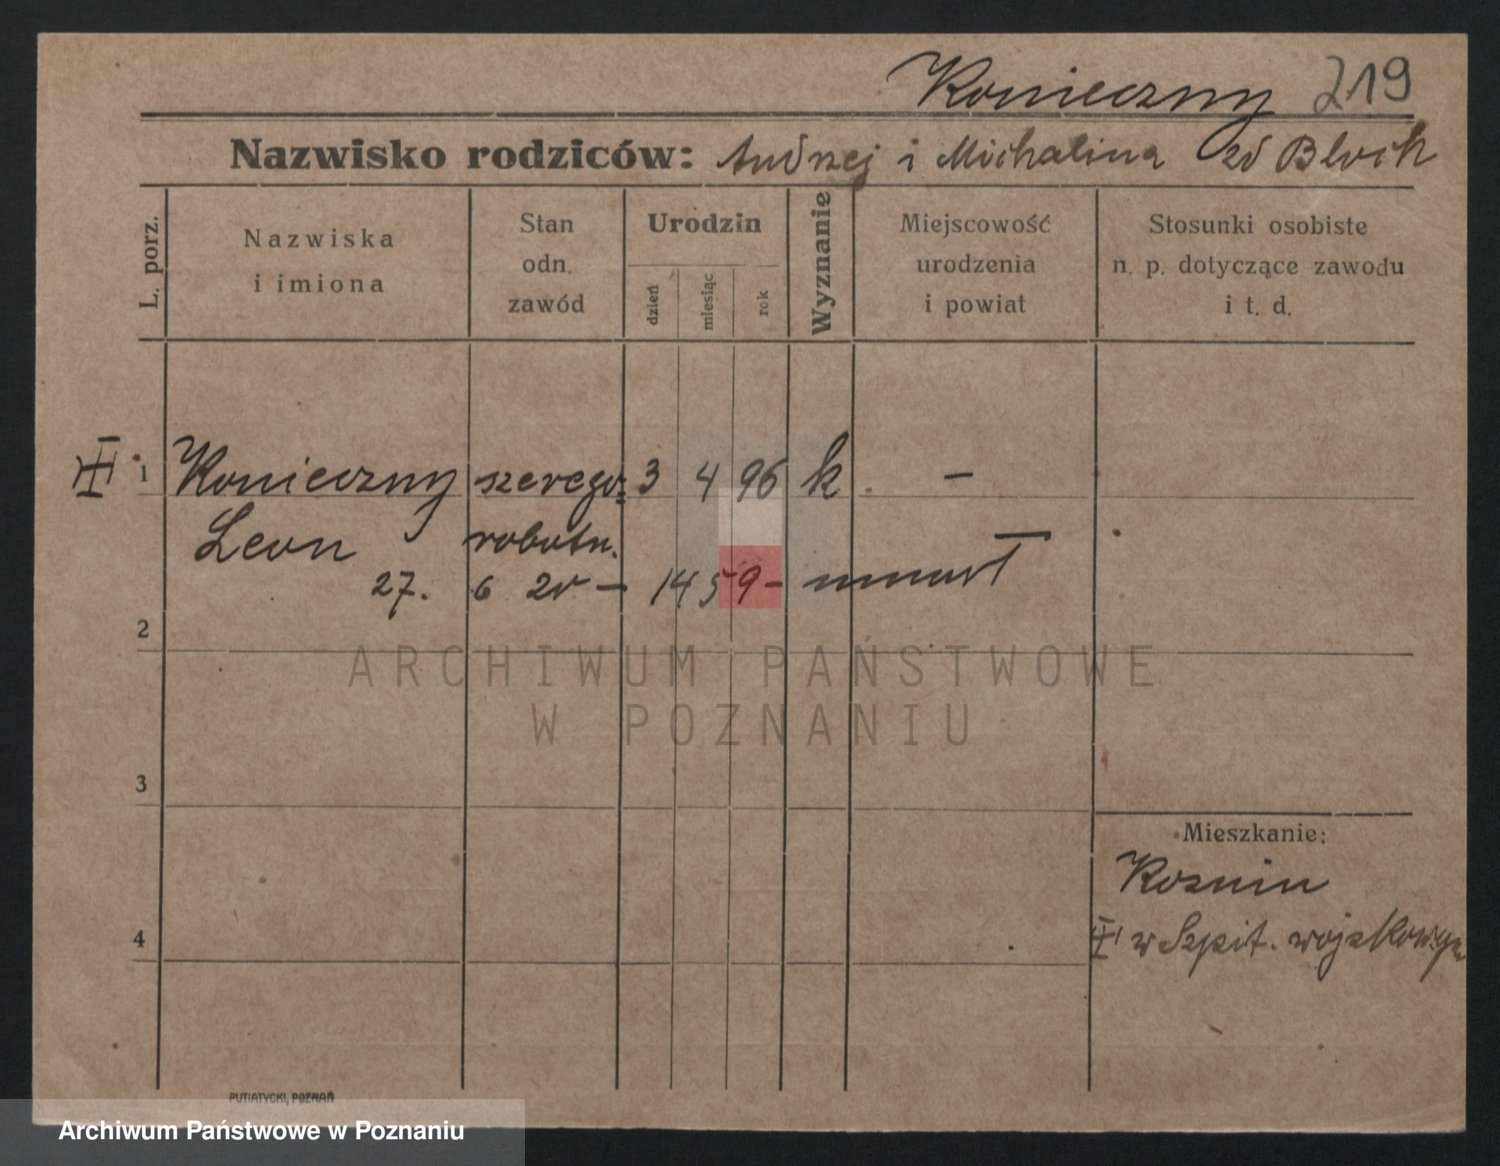 Konieczny 219
Nazwisko rodziców: Andrzej i Michalina zd Bloch
L. porz.
Nazwiska
i imiona
Stan
odn.
zawód
Urodzin
dzień
miesiąc
rok
Wyznanie
Miejscowość
urodzenia
i powiat
Stosunki osobiste
n. p. dotyczące zawodu
i t. d.
1 Konieczny szerego= 3 4 96 k —
Leon robotn.
27. 6 20 — 1459 —
2
ARCHIWUM PAŃSTWOWE
W POZNANIU
3
Mieszkanie:
4
w Szpit. wojskowym
PUTIATYCKI, POZNAŃ
Archiwum Państwowe w Poznaniu